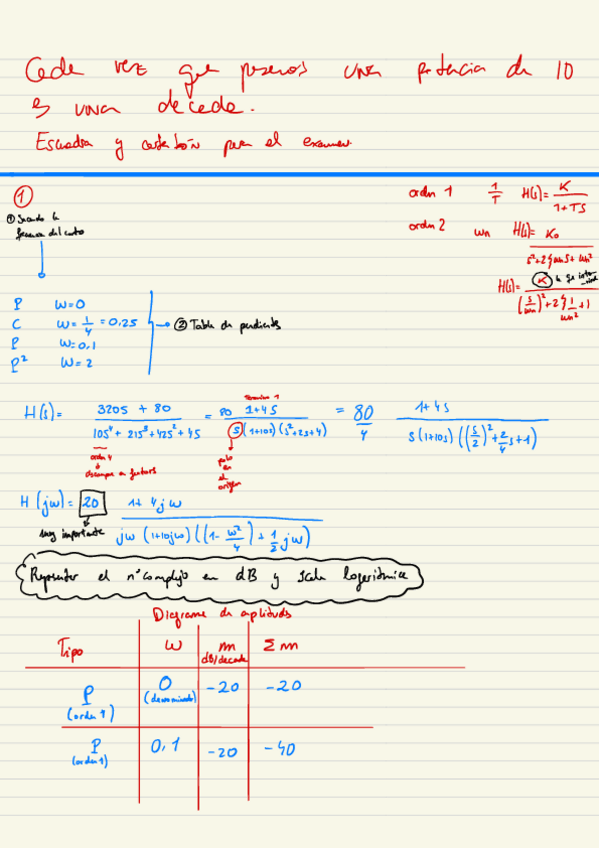 Cada vez que pasamos una potencia de 10
es una decada.
Escuadra y cartabón para el examen
①
① Sacando la
frecuencia del corte
orden 1 1/T H(s)= K/(1+TS)
orden 2 wn H(s)= K0/(s²+2ξwns+wn²)
H(s)= K
P w=0
C w=1/4=0,25
P w=0,1
P² w=2
② Tabla de pendientes
H(s)= (320s + 80)/(10s⁴+21s³+42s²+4s) = 80 (1+4s)/(s(1+10s)(s²+2s+4)) = 80/4 (1+4s)/(s(1+10s)((s/2)²+2/4s+1))
Termino 1
orden 4
descomponer en factores
polo
en
el
origen
H(jw)= 20 (1+4jw)/(jw(1+10jw)((1-w²/4)+1/2jw))
muy importante
Representar el nº complejo en dB y escala logaritmica
Diagrama de amplitudes
Tipo w m dB/decada Σm
P (orden 1) 0 (denominador) -20 -20
P (orden 1) 0,1 -20 -40